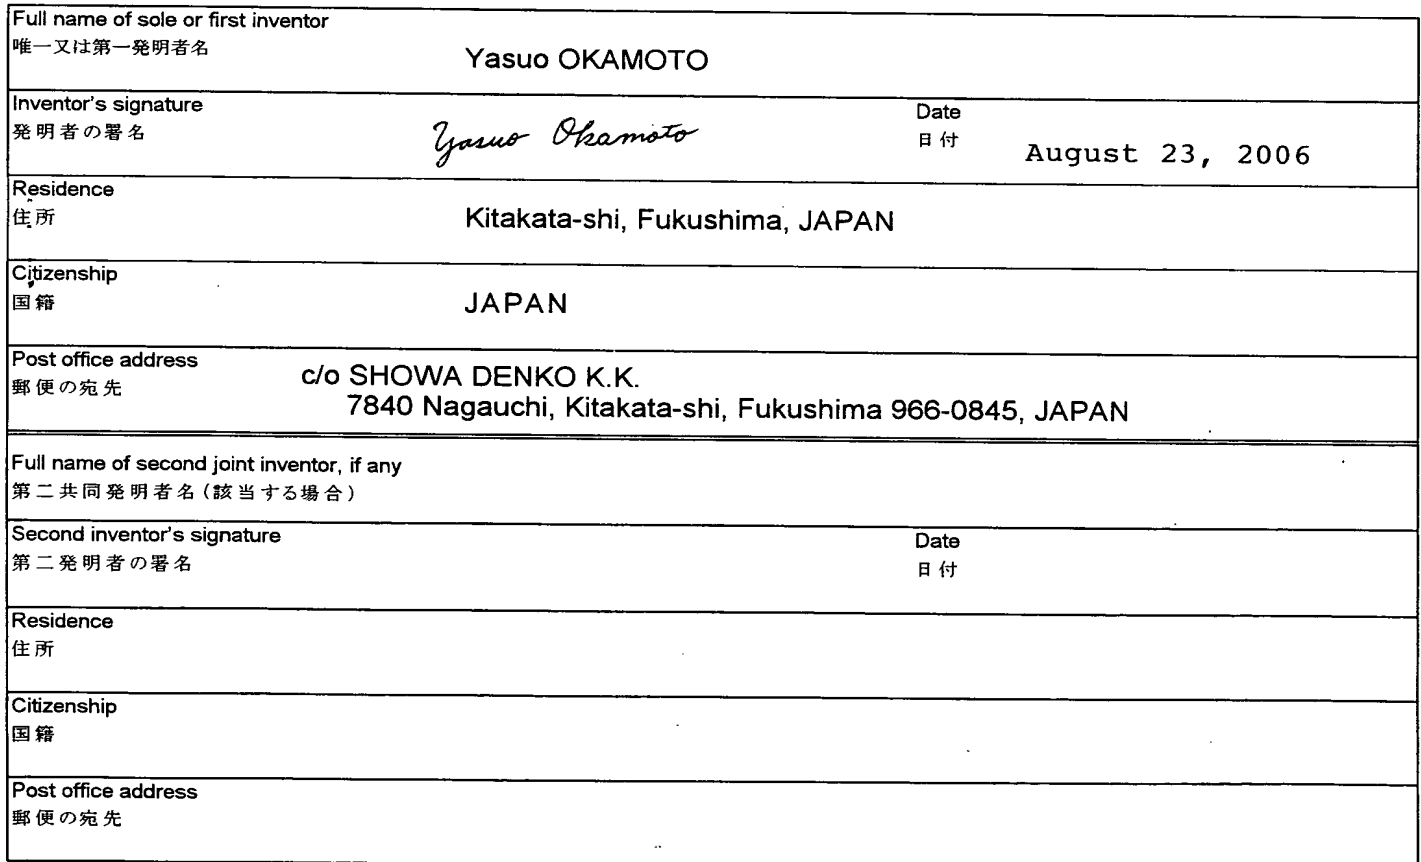 Full name of sole or first inventor
唯一又は第一発明者名
Yasuo OKAMOTO
Inventor's signature
発明者の署名
Yasuo Okamoto
Date
日付
August 23, 2006
Residence
住所
Kitakata-shi, Fukushima, JAPAN
Citizenship
国籍
JAPAN
Post office address
郵便の宛先
c/o SHOWA DENKO K.K.
7840 Nagauchi, Kitakata-shi, Fukushima 966-0845, JAPAN
Full name of second joint inventor, if any
第二共同発明者名(該当する場合)
Second inventor's signature
第二発明者の署名
Date
日付
Residence
住所
Citizenship
国籍
Post office address
郵便の宛先